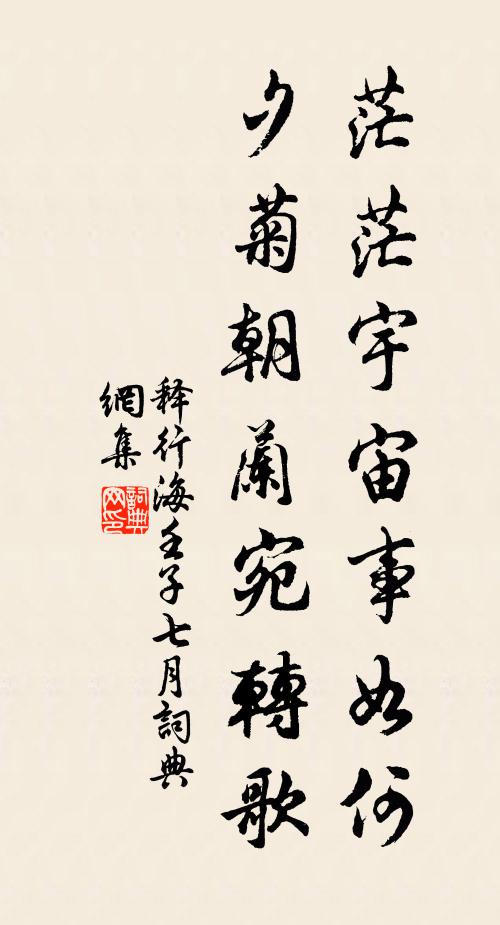 茫茫宇宙事如何
夕菊朝蘭宛轉歌
释行海壬子七月詞典
網集
詞典
网印